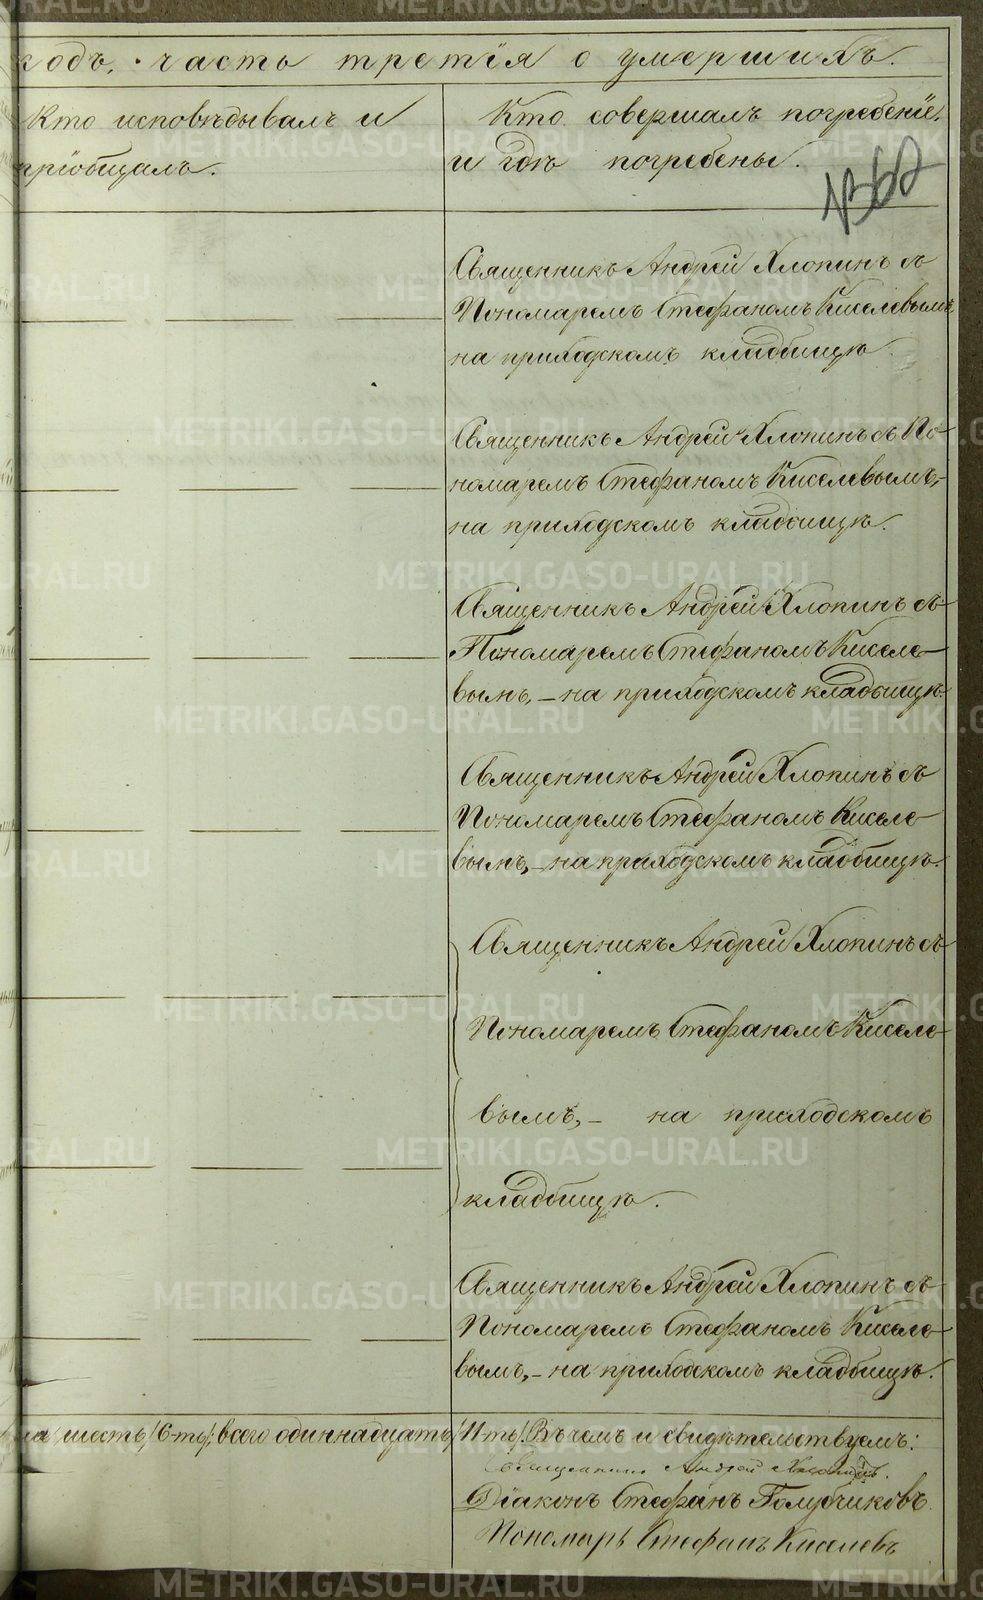 годъ, часть третія о умершихъ.
Кто исповѣдывалъ и
пріобщалъ.
Кто совершалъ погребеніе,
и гдѣ погребены.
Священникъ Андрей Хлопинъ съ
Пономаремъ Стефаномъ Киселевымъ,
на приходскомъ кладбищѣ.
Священникъ Андрей Хлопинъ съ По-
номаремъ Стефаномъ Киселевымъ,-
на приходскомъ кладбищѣ.
Священникъ Андрей Хлопинъ съ
Пономаремъ Стефаномъ Киселе-
вымъ,- на приходскомъ кладбищѣ.
Священникъ Андрей Хлопинъ съ
Пономаремъ Стефаномъ Киселе-
вымъ,- на приходскомъ кладбищѣ.
Священникъ Андрей Хлопинъ съ
Пономаремъ Стефаномъ Киселе
вымъ,- на приходскомъ
кладбищѣ.
Священникъ Андрей Хлопинъ съ
Пономаремъ Стефаномъ Киселе-
вымъ,- на приходскомъ кладбищѣ.
шесть /6-ть/; всего одиннадцать /11-ть/. Въ чемъ и свидѣтельствуемъ:
Священникъ Андрей Хлопинъ.
Діаконъ Стефанъ Голубчиковъ.
Пономарь Стефанъ Киселевъ
METRIKI.GASO-URAL.RU